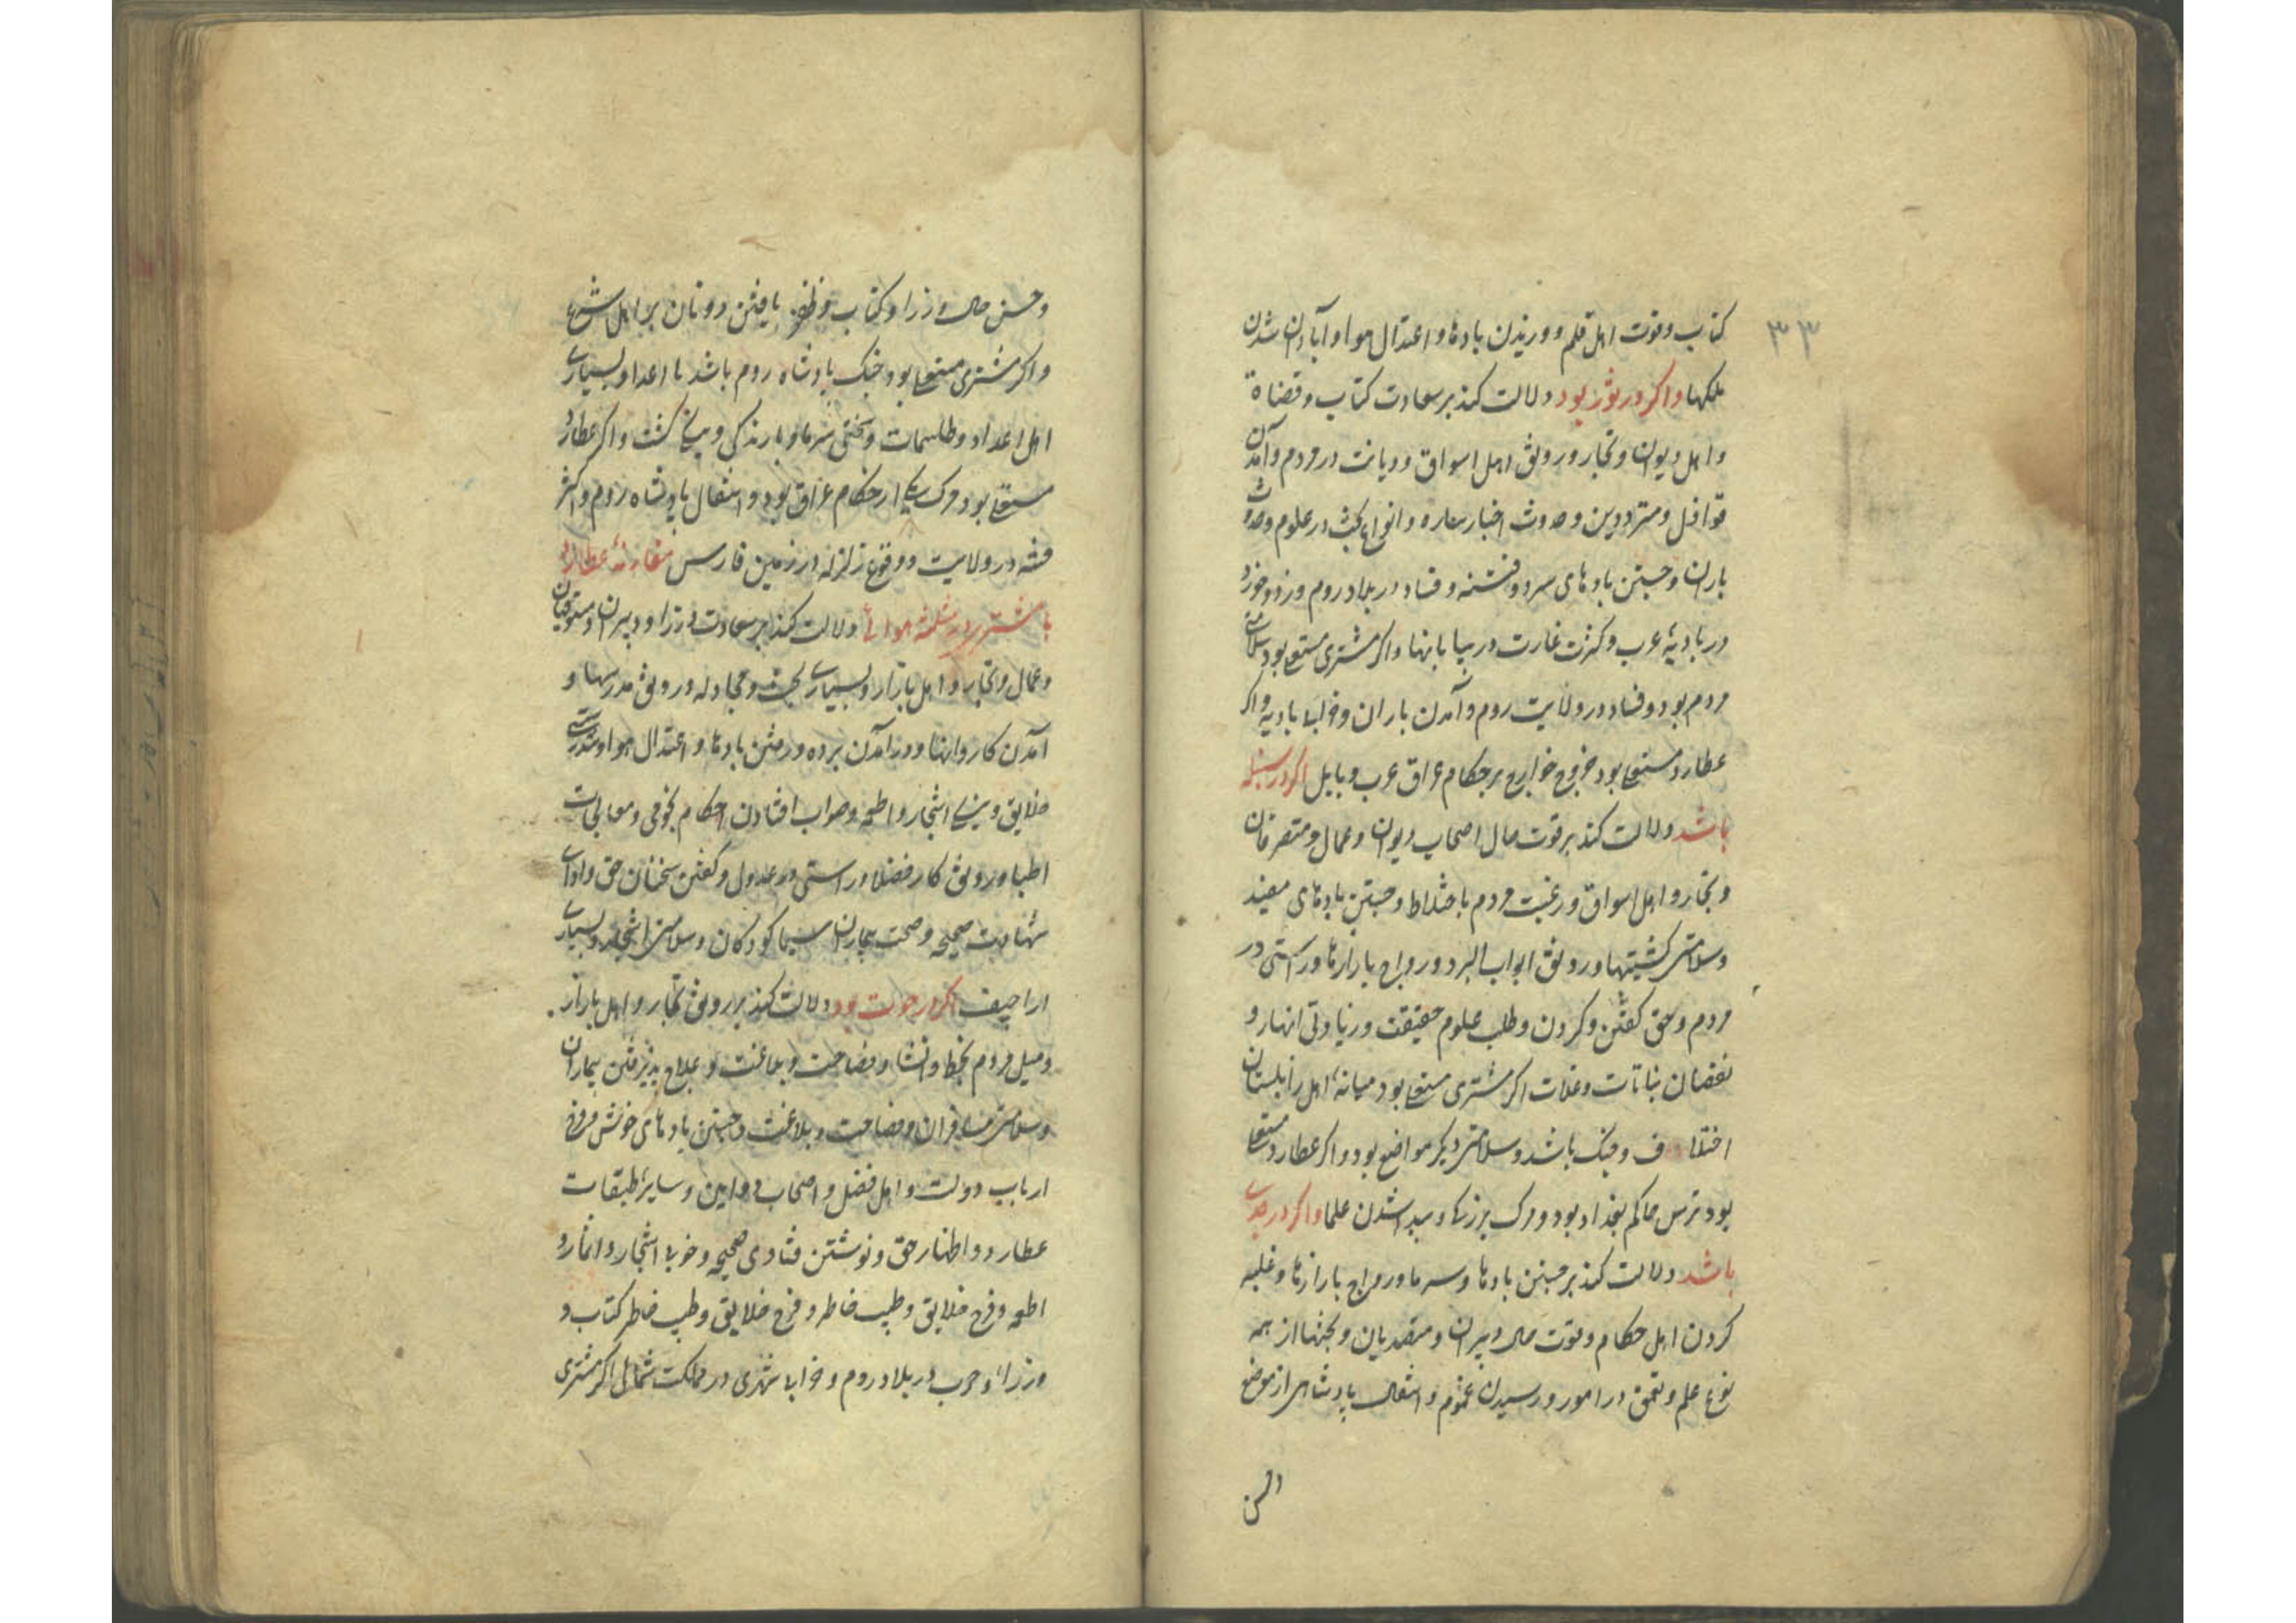 ۳۳
کتاب وقوت اهل قلم و وزیدن بادها و اعتدال هوا و آبادان شدن
ملکها واکر در ثور بود دلالت کند بر سعادت کتاب و قضاة
و اهل دیوان و تجار و رونق اهل اسواق و دیانت در مردم وآمدن
قوافل و مترددین و حدوث اخبار ساره و انواع بحث در علوم وحدوث
باران و جستن بادهای سرد و فتنه و فساد در بلاد روم وزد وخورد
در بادیۀ عرب و کثرت غارت در بیابانها واکر مشتری مستعلی بود سلامتی
مردم بود و فساد در ولایت روم وآمدن باران و خرابی بادیه واکر
عطارد مستعلی بود خروج خوارج بر حکام عراق عرب و بابل اکر در سنبله
باشد دلالت کند بر قوت حال اصحاب دیوان و عمال و متصرفان
و تجار و اهل اسواق و رغبت مردم باختلاط و جستن بادهای مفید
وسلامتی کشتیها و رونق ابواب البر و رواج بازارها و راستی در
مردم وحق کفتن و کردن وطلب علوم حقیقت و زیادتی انهار و
نقصان نباتات و غلات اکر مشتری مستعلی بود میانۀ اهل زابلستان
اختلاف و جنک باشد و سلامتی دیکر مواضع بود و اکر عطارد مستعلی
بود ترس حاکم بغداد بود و مرک بزرکی و پیدا شدن علما واکر در جدی
باشد دلالت کند بر جستن بادها و سرما و رواج بازارها و غلبه
کردن اهل حکام وقوت حال دبیران و متصدیان و بحثها از همه
نوع علم و تعمق در امور و رسیدن غموم و انتقال پادشاهی از موضع
وحسن حال وزرا و کتاب و ظفر یافتن دونان بر اهل شرع
واکر مشتری مستعلی بود جنک پادشاه روم باشد با اعدا و بسیاری
اهل اعداد و طلسمات و سختی سرما و بارندکی و نیکی کشت واکر عطارد
مستعلی بود مرک یکی از حکام عراق بود و انتقال پادشاه روم واکثر
فتنه در ولایت و وقوع زلزله در زمین فارس مقارنۀ عطارد
با مشتری در مثلثه هوائی دلالت کند بر سعادت وزرا و دبیران و مستوفیان
وعمال و تجار و اهل بازار و بسیاری بحث و مجادله و رونق مدرسها و
آمدن کاروانها و درآمدن برده و رفتن بادها و اعتدال هوا و تندرستی
خلایق و نیکی اشجار و اطعمه وصواب افتادن احکام نجومی و معالجات
اطبا و رونق کار فضلا و راستی در عدول و کفتن سخنان حق و ادای
شهادت صحیحه و صحت بیماران سیما کودکان و سلامتی اشجار و بسیاری
اراجیف اکر در حوت بود دلالت کند بر رونق تجار و اهل بازار
ومیل مردم بخط و انشا و فصاحت و بلاغت و علاج پذیرفتن بیماران
وسلامتی مسافران و فصاحت و بلاغت و جستن بادهای خوش و فرح
ارباب دولت و اهل فضل و اصحاب دواوین و سایر طبقات
عطارد و اظهار حق و نوشتن فتاوی صحیحه و خوبی اشجار و اثمار و
اطعمه و فرح خلایق و طیب خاطر و فرح خلایق و طیب خاطر کتاب و
وزراء و حرب در بلاد روم و خرابی شهری در مملکت شمال اکر مشتری